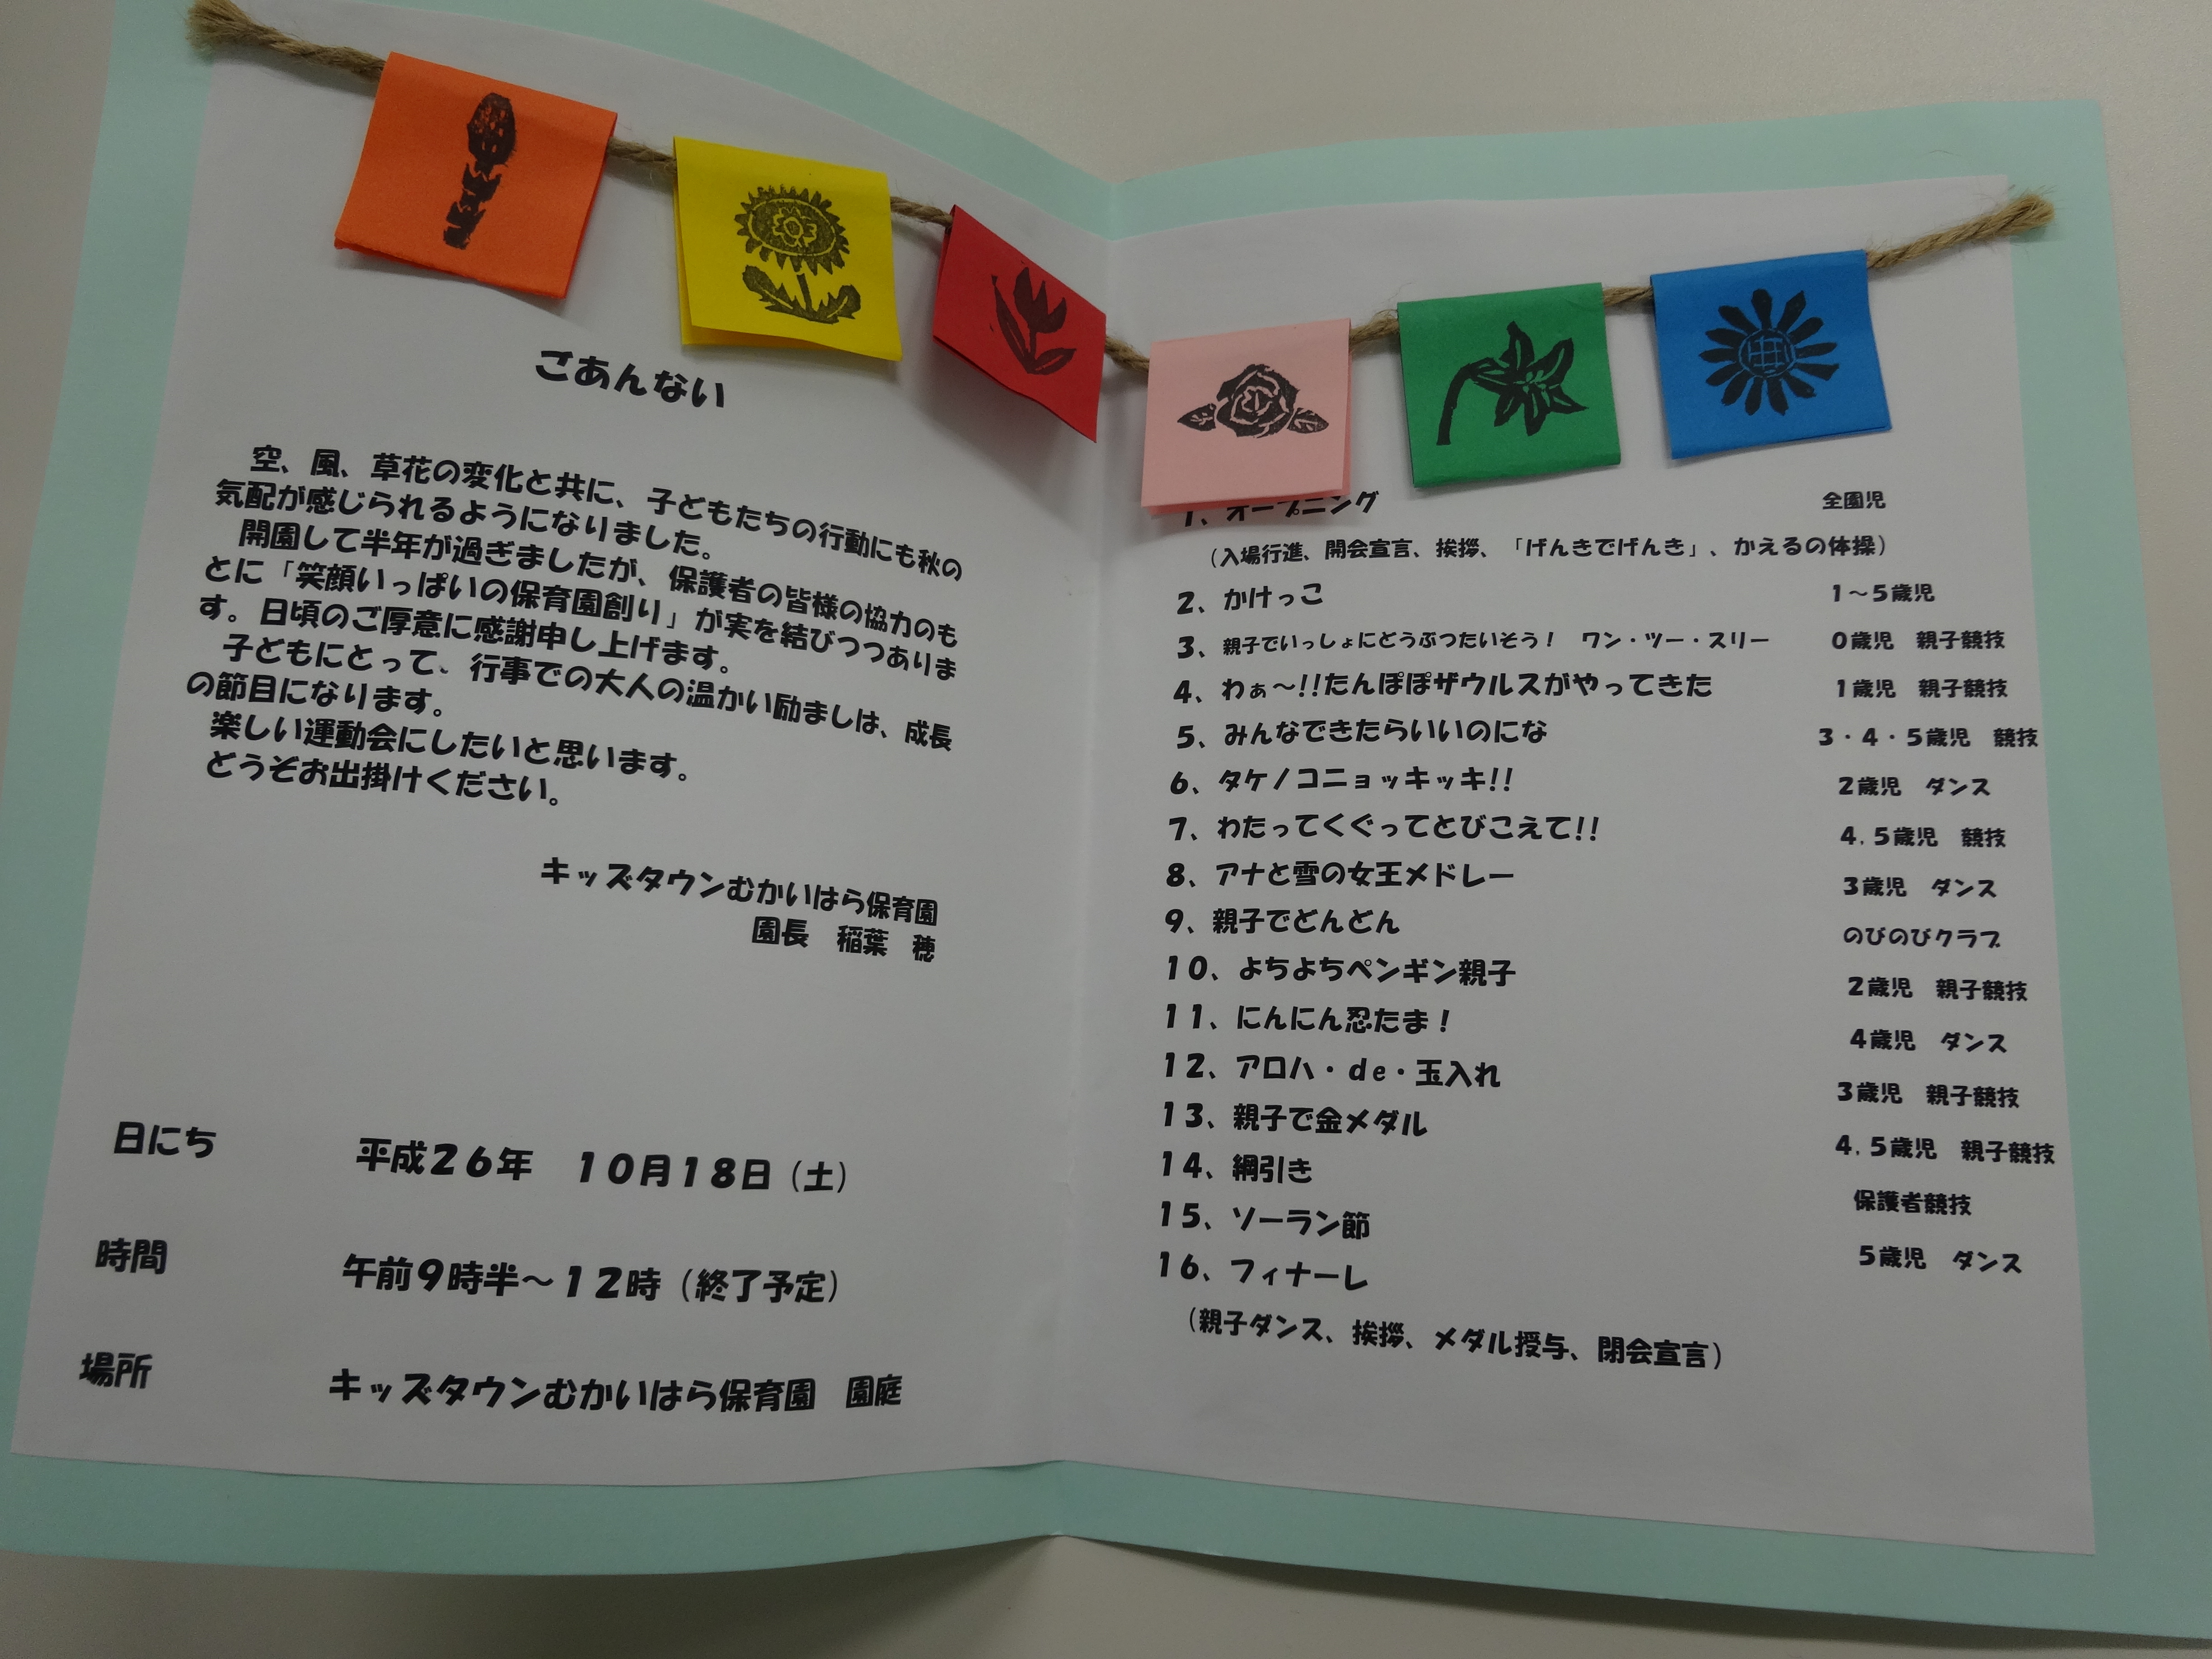 ごあんない
空、風、草花の変化と共に、子どもたちの行動にも秋の
気配が感じられるようになりました。
開園して半年が過ぎましたが、保護者の皆様の協力のも
とに「笑顔いっぱいの保育園創り」が実を結びつつありま
す。日頃のご厚意に感謝申し上げます。
子どもにとって、行事での大人の温かい励ましは、成長
の節目になります。
楽しい運動会にしたいと思います。
どうぞお出掛けください。
キッズタウンむかいはら保育園
園長　稲葉　穂
日にち　平成26年　10月18日（土）
時間　午前9時半～12時（終了予定）
場所　キッズタウンむかいはら保育園　園庭
1、オープニング　全園児
（入場行進、開会宣言、挨拶、「げんきでげんき」、かえるの体操）
2、かけっこ　1～5歳児
3、親子でいっしょにどうぶつたいそう！　ワン・ツー・スリー　0歳児　親子競技
4、わぁ～!!たんぽぽザウルスがやってきた　1歳児　親子競技
5、みんなできたらいいのにな　3・4・5歳児　競技
6、タケノコニョッキッキ!!　2歳児　ダンス
7、わたってくぐってとびこえて!!　4,5歳児　競技
8、アナと雪の女王メドレー　3歳児　ダンス
9、親子でどんどん　のびのびクラブ
10、よちよちペンギン親子　2歳児　親子競技
11、にんにん忍たま！　4歳児　ダンス
12、アロハ・de・玉入れ　3歳児　親子競技
13、親子で金メダル　4,5歳児　親子競技
14、綱引き　保護者競技
15、ソーラン節　5歳児　ダンス
16、フィナーレ
（親子ダンス、挨拶、メダル授与、閉会宣言）